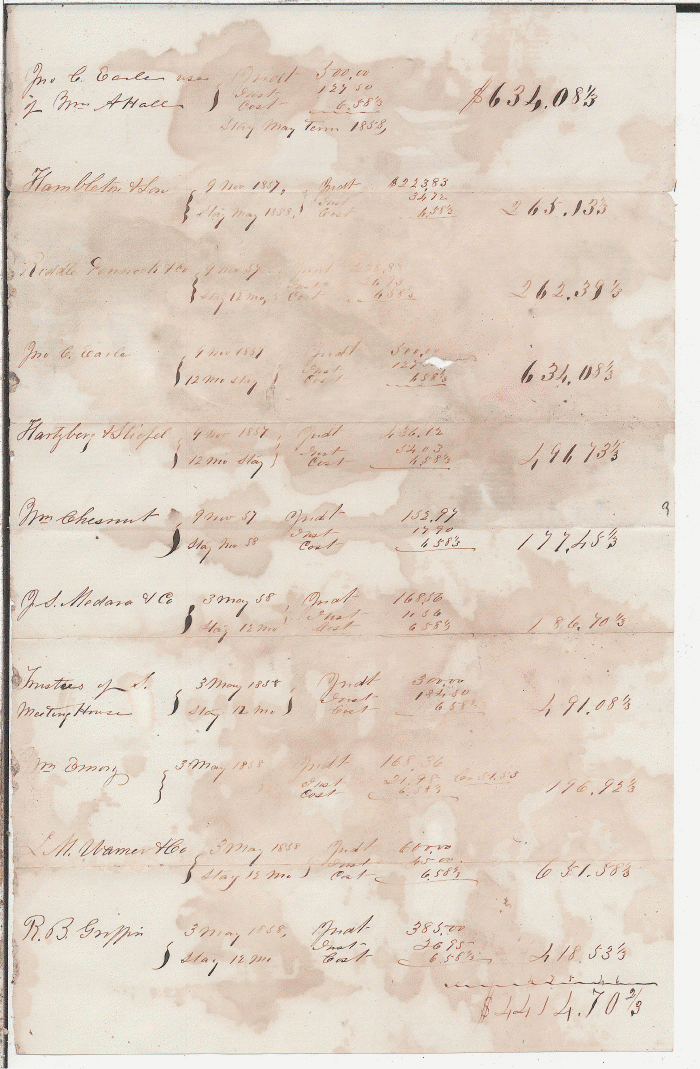 Jno C. Earle use Judt 500.00
of Wm A Hall } Inst 127 50 $634.08⅓
Cost 6.58⅓
Stay May Term 1858,
Hambleton & Son { 9 Nov 1857, Judt $223,83
Stay May 1858, Inst 34 72 265.13⅓
Cost 6.58⅓
Riddle & Co 9 Nov 57 Judt
{ Stay 12 mo, Inst 262.39⅓
Cost 6.58⅓
Jno C. Earle 9 Nov 1857 Judt 500.00
12 Mo Stay Inst 127 634,08⅓
Cost 6.58⅓
Hartzberg & Stiefel { 9 Nov 1857 Judt 436.12
12 mo Stay } Inst 54.03 496 73⅓
Cost 6.58⅓
Wm Chesnut { 9 Nov 57 Judt 152.97
Stay Nov 58 Inst 17.90 177,45⅓
Cost 6 58⅓
J. S. Medara & Co { 3 May 58 Judt 168.56
Stay 12 mo Inst 11 56 186.70⅓
Cost 6 58⅓
Trustees of S. { 3 May 1858 Judt 300.00
Meeting House Stay 12 mo } Inst 184.50 491.08⅓
Cost 6 58⅓
Wm Emory { 3 May 1858 Judt 168.36
Inst 21.98 196.92⅓
Cost 6.58⅓
L M. Warner & Co { 3 May 1858 Judt 600.00
Stay 12 Mo Inst 45 00 651.58⅓
Cost 6.58⅓
R. B. Griffin 3 May 1858, Judt 385.00
} Stay 12 Mo Inst 26 95 418.53⅓
Cost 6 58⅓
$4414.70⅔